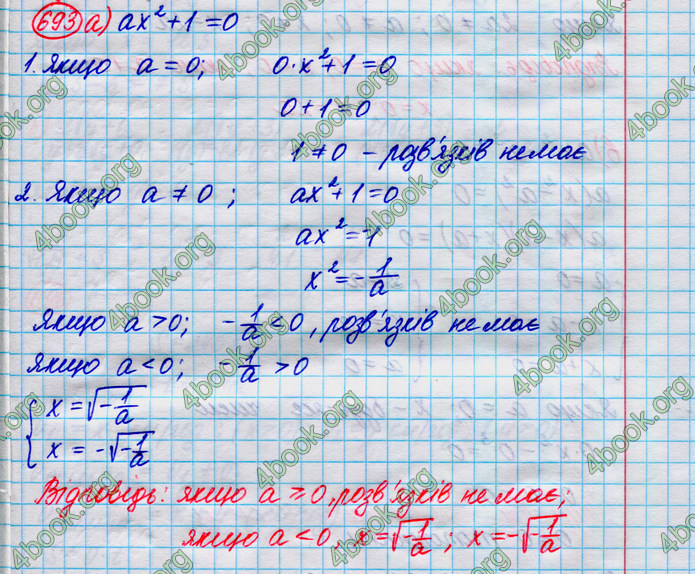 693 а) ax²+1=0
1. Якщо a=0; 0·x²+1=0
0+1=0
1≠0 – розв'язків немає
2. Якщо a≠0; ax²+1=0
ax²=-1
x²=-1/a
Якщо a>0; -1/a<0, розв'язків немає
якщо a<0; -1/a>0
{ x=√(-1/a)
x=-√(-1/a)
Відповідь: якщо a≥0, розв'язків немає;
якщо a<0, x=√(-1/a); x=-√(-1/a)
4book.org